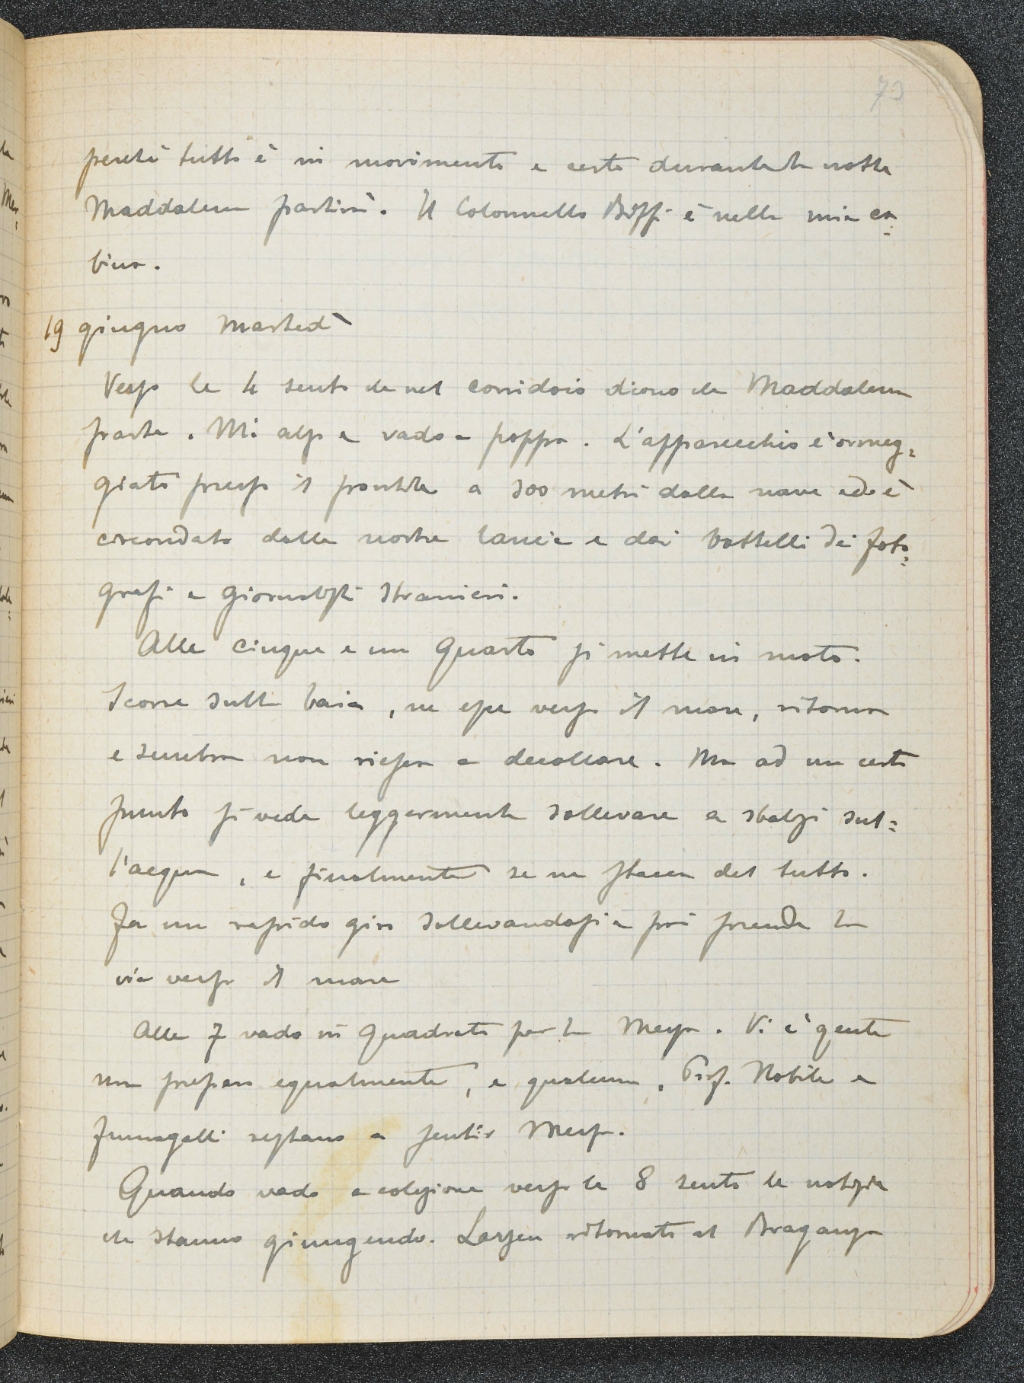 73
perché tutto è in movimento e certo durante la notte
Maddalena partirà. Il Colonnello è nella mia ca=
bina.
19 giugno Martedì
Verso le 4 sento che nel corridoio dicono che Maddalena
parte. Mi alzo e vado a poppa. L'apparecchio è ormeg=
giato presso il pontile a 300 metri dalla nave ed è
circondato dalle nostre lancie e dai battelli dei foto=
grafi e giornalisti stranieri.
Alle cinque e un quarto si mette in moto.
Scorre sulla baia, ne esce verso il mare, ritorna
e sembra non riesca a decollare. Ma ad un certo
punto si vede leggermente sollevare a sbalzi sul=
l'acqua, e finalmente se ne stacca del tutto.
Fa un rapido giro sollevandosi e poi prende la
via verso il mare
Alle 7 vado in quadrato per la Messa. Vi è gente
ma egualmente, e qualcuno, Prof. Nobile e
Fumagalli restano a sentir Messa.
Quando vado a colazione verso le 8 sento le notizie
che stanno giungendo. Larsen ritornato al Braganza